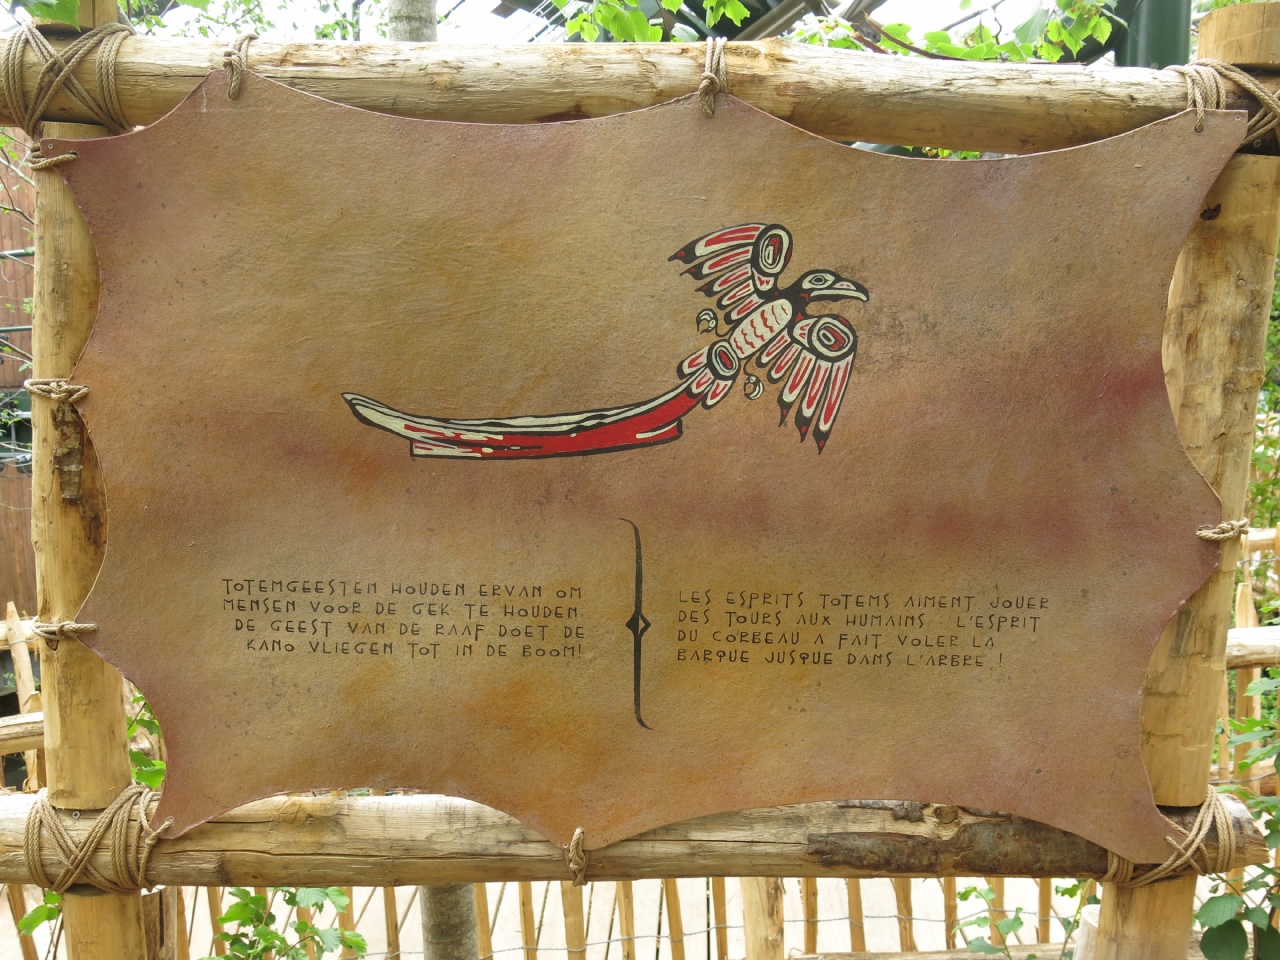 TOTEMGEESTEN HOUDEN ERVAN OM
MENSEN VOOR DE GEK TE HOUDEN.
DE GEEST VAN DE RAAF DOET DE
KANO VLIEGEN TOT IN DE BOOM!
LES ESPRITS TOTEMS AIMENT JOUER
DES TOURS AUX HUMAINS. L'ESPRIT
DU CORBEAU A FAIT VOLER LA
BARQUE JUSQUE DANS L'ARBRE.!